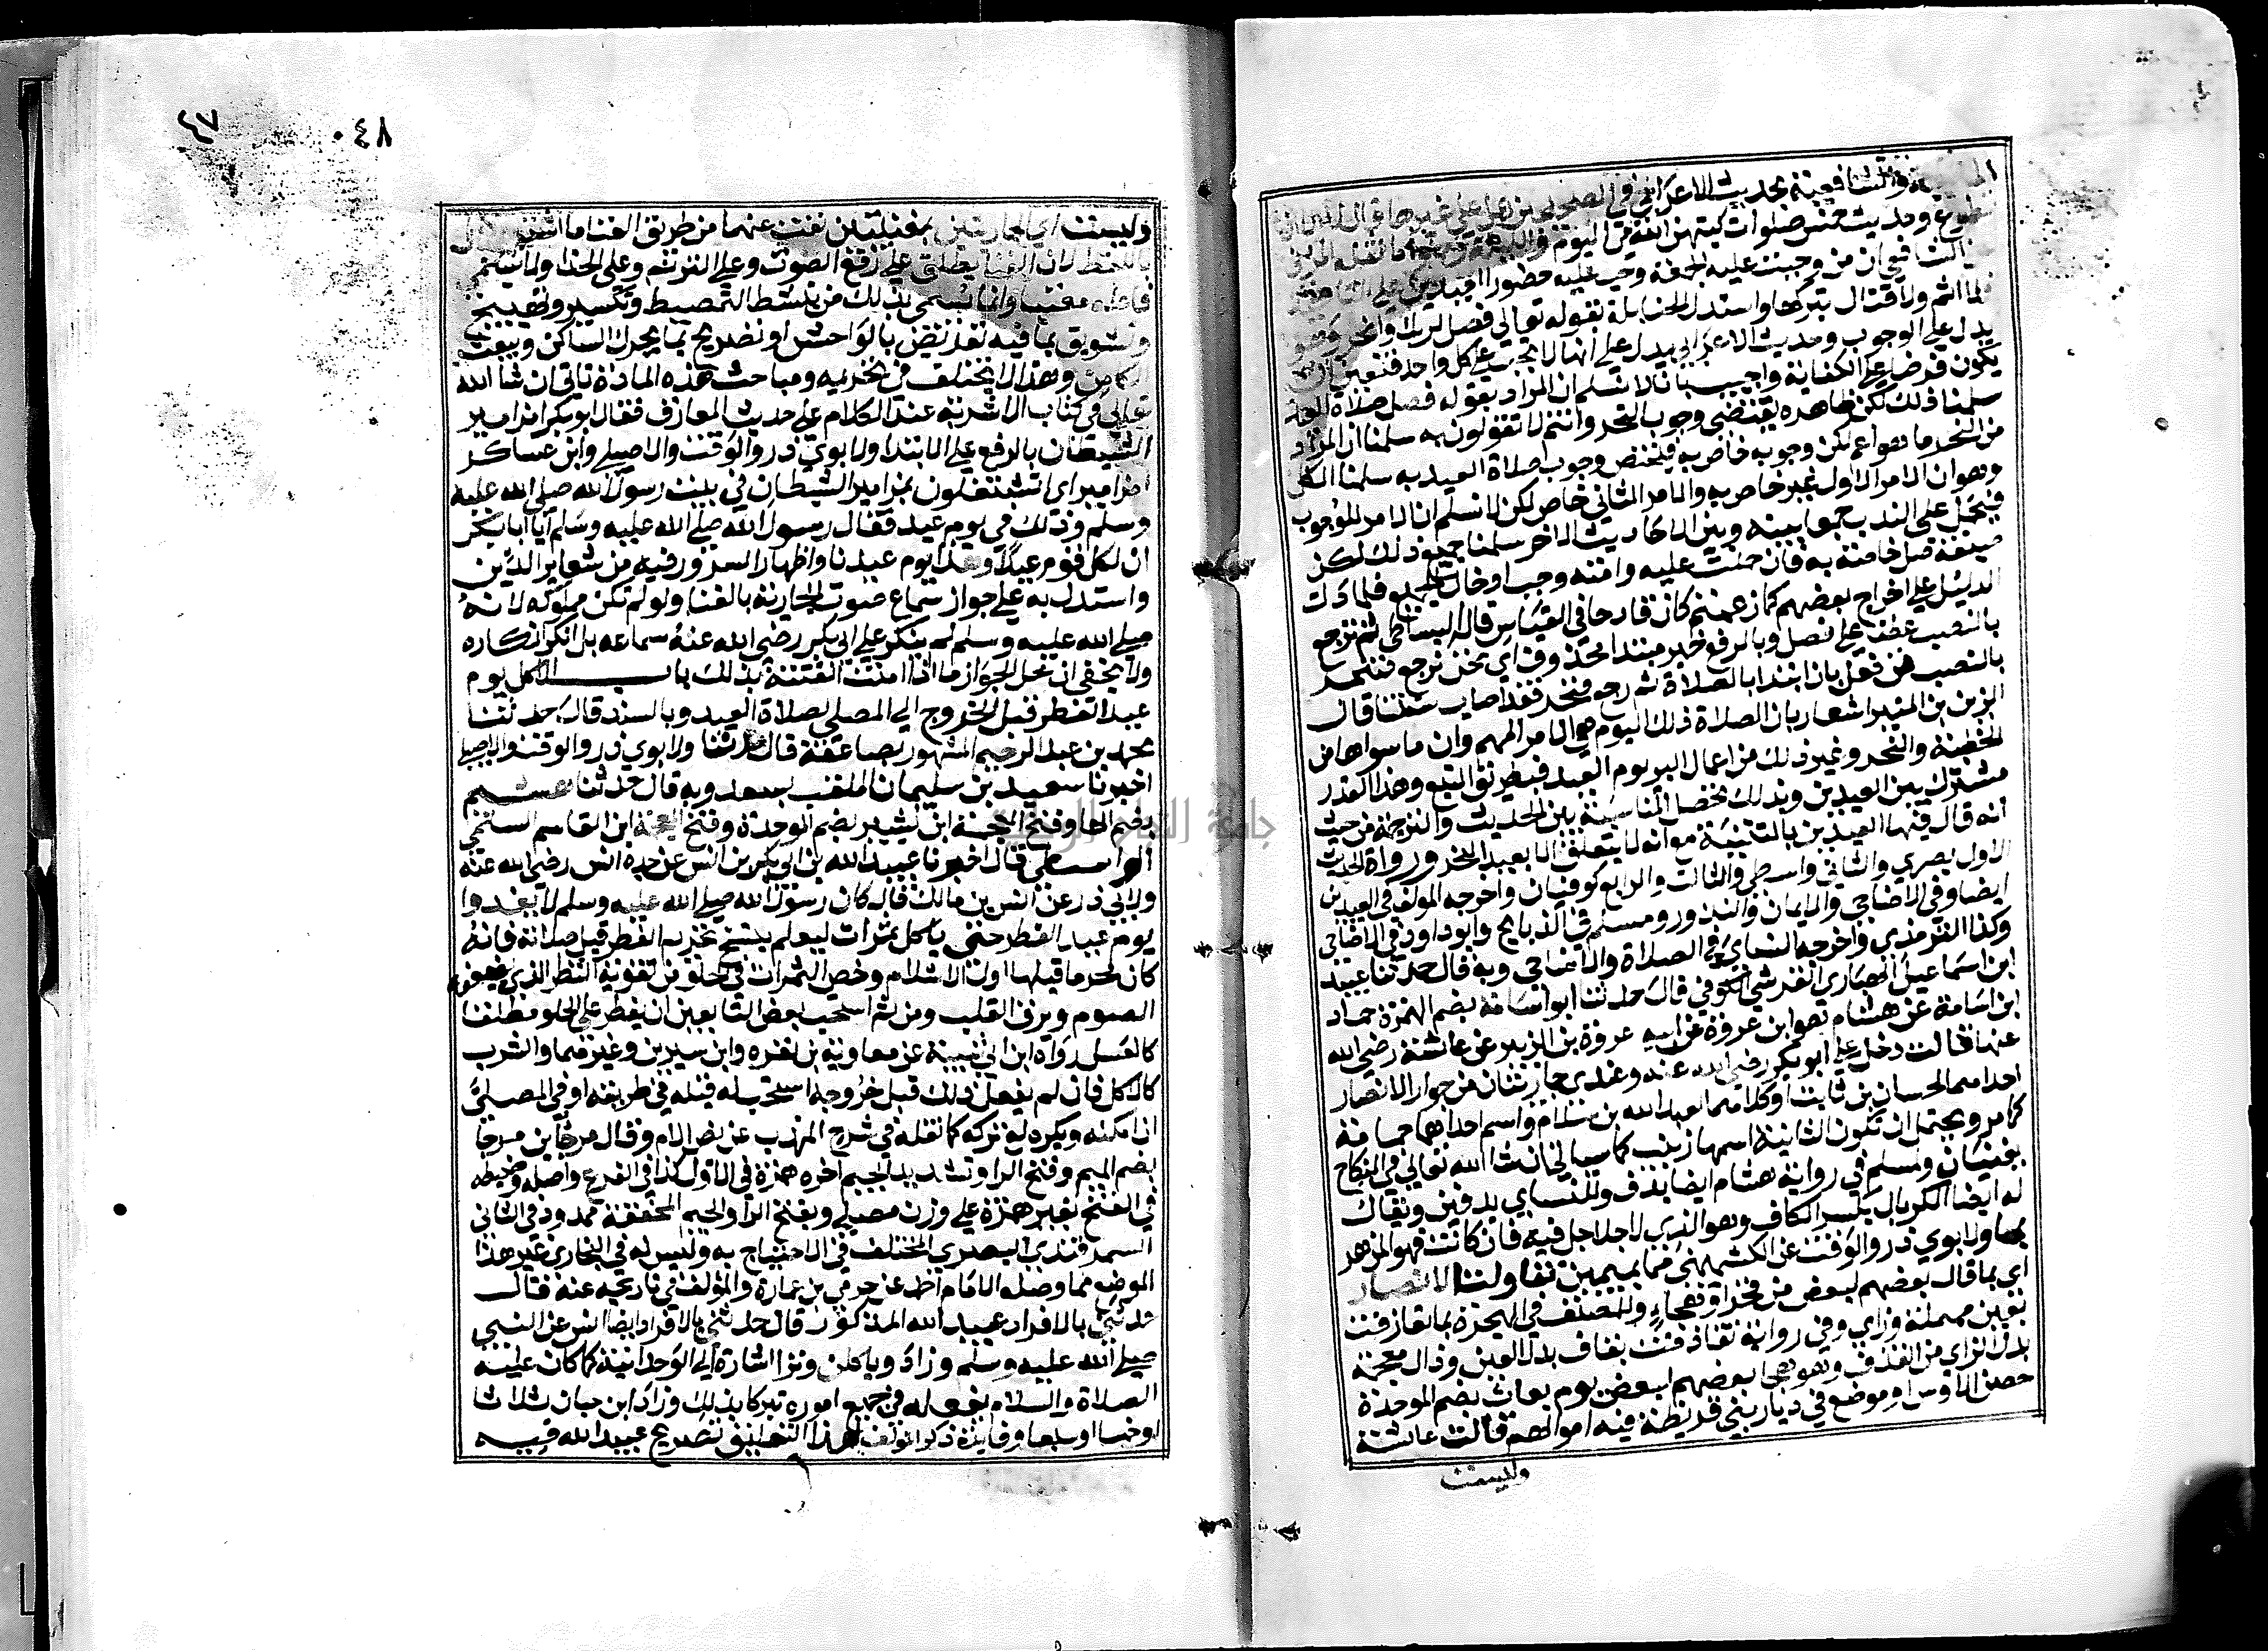 والشافعية بحديث الاعرابي في الصحيحين هل علي غيرها قال لا الا ان
تطوع وحديث خمس صلوات كتبهن الله في اليوم والليلة وحملوا ما نقله المزني
عن الشافعي ان من وجبت عليه الجمعة وجب عليه حضور العيدين علي التاكيد
فلا اثم ولا قتال بتركها واستدل الحنابلة بقوله تعالي فصل لربك وانحر وهو
يدل علي الوجوب وحديث الاعرابي يدل علي انها لا تجب علي كل واحد فتعين ان
يكون فرضا علي الكفاية واجيب بانا لا نسلم ان المراد بقوله فصل صلاة العيد
سلمنا ذلك لكن ظاهره يقتضي وجوب النحر وانتم لا تقولون به سلمنا ان المراد
من النحر ما هو اعم لكن وجوبه خاص به فيختص وجوب صلاة العيد به سلمنا الكل
وهو ان الامر الاول غير خاص به والامر الثاني خاص لكن لا نسلم ان الامر للوجوب
فيحمل علي الندب جمعا بينه وبين الاحاديث الاخر سلمنا جميع ذلك لكن
صيغة صل خاصة به فان حملت عليه وامته وجب ادخال الجميع فلما دل
الدليل علي اخراج بعضهم كما زعمتم كان قادحا في القياس قاله البساطي ثم نرجع
بالنصب عطفا علي نصلي وبالرفع خبر مبتدا محذوف اي نحن نرجع فننحر
بالنصب فمن فعل بان ابتدا بالصلاة ثم رجع فنحر فقد اصاب سنتنا قال
الزين بن المنير اشعار بان الصلاة ذلك اليوم هي الامر المهم وان ما سواها من
الخطبة والنحر وغير ذلك من اعمال البر يوم العيد فبطريق التبع وهذا القدر
مشترك بين العيدين وبذلك تحصل المناسبة بين الحديث والترجمة من حيث
انه قال فيها العيدين بالتثنية مع انه لا يتعلق الا بعيد النحر ورواة الحديث
الاول بصري والثاني واسطي والثالث والرابع كوفيان واخرجه المولف في العيدين
ايضا وفي الاضاحي والايمان والنذور ومسلم في الذبايح وابو داود في الاضاحي
وكذا الترمذي واخرجه النساي في الصلاة والاضاحي وبه قال حدثنا عبيد
ابن اسماعيل الهباري القرشي الكوفي قال حدثنا ابو اسامة بضم الهمزة حماد
ابن اسامة عن هشام هو ابن عروة عن ابيه عروة بن الزبير عن عائشة رضي الله
عنها قالت دخل علي ابو بكر رضي الله عنه وعندي جاريتان من جوار الانصار
احداهما لحسان بن ثابت او كلاهما لعبد الله بن سلام واسم احداهما حمامة
كما مر ويحتمل ان تكون الثانية اسمها زينب كما سياتي ان شا الله تعالي في النكاح
يغنيان ولمسلم في رواية هشام ايضا بدف وللنساي بدفين ويقال
له ايضا الكربال بكسر الكاف وهو الذي لا جلاجل فيه فان كانت فهو المزهر
بما ولابوي ذر والوقت عن الكشميهني مما بميمين تقاولت الانصار
اي بما قال بعضهم لبعض من فخر او هجاء وللمصنف في الهجرة بما تعازفت
بعين مهملة وزاي وفي رواية تقاذفت بقاف بدل العين وذال معجمة
بدل الزاي من القذف وهو هجا بعضهم لبعض يوم بعاث بضم الموحدة
حصن للاوس او موضع في ديار بني قريظة فيه اموالهم قالت عائشة
وليست
٠٤٨
٤٧
وليست اي الجاريتين بمغنيتين نفت عنهما من طريق المعنى ما اثبته لهما
باللفظ لان الغنا يطلق علي رفع الصوت وعلي الترنم وعلي الحدا ولا يسمى
فاعله مغنيا وانما يسمى بذلك من ينشد بتمطيط وتكسير وتهييج
وتشويق بما فيه تعريض بالفواحش او تصريح بما يحرك الساكن ويبعث
الكامن وهذا لا يختلف في تحريمه ومباحث هذه المادة تاتي ان شا الله
تعالي في كتاب الاشربة عند الكلام علي حديث المعازف فقال ابو بكر امزامير
الشيطان بالرفع علي الابتدا ولابوي ذر والوقت والاصيلي وابن عساكر
امزامير اي اتشتغلون بمزامير الشيطان في بيت رسول الله صلي الله عليه
وسلم وذلك في يوم عيد فقال رسول الله صلي الله عليه وسلم يا ابا بكر
ان لكل قوم عيدا وهذا يوم عيدنا واظهار السرور فيه من شعاير الدين
واستدل به علي جواز سماع صوت الجارية بالغنا ولو لم تكن مملوكة لانه
صلي الله عليه وسلم لم ينكر علي ابي بكر رضي الله عنه سماعه بل انكر انكاره
ولا يخفى ان محل الجواز ما اذا امنت الفتنة بذلك باب الاكل يوم
عيد الفطر قبل الخروج الي المصلي لصلاة العيد وبالسند قال حدثنا
محمد بن عبد الرحيم المشهور بصاعقة قال حدثنا ولابوي ذر والوقت والاصيلي
اخبرنا سعيد بن سليمان الملقب بسعدويه قال حدثنا هشيم
بضم الها وفتح المعجمة ابن بشير بضم الموحدة وفتح المعجمة ابن القاسم السلمي
الواسطي قال اخبرنا عبيد الله بن ابي بكر بن انس عن جده انس رضي الله عنه
ولابي ذر عن انس بن مالك قال كان رسول الله صلي الله عليه وسلم لا يغدوا
يوم عيد الفطر حتي ياكل تمرات ليعلم بنسخ تحريم الفطر قبل صلاته فانه
كان محرما قبلها اول الاسلام وخص التمرات لما في الحلو من تقوية النظر الذي يضعفه
الصوم ويرق القلب ومن ثم استحب بعض التابعين ان يفطر علي الحلو مطلقا
كالعسل رواه ابن ابي شيبة عن معاوية بن قره وابن سيرين وغيرهما والشرب
كالاكل فان لم يفعل ذلك قبل خروجه استحب له فعله في طريقه او في المصلي
ان امكنه ويكره له تركه كما نقله في شرح المهذب عن نص الام وقال مرجا بن مرجا
بضم الميم وفتح الرا وتشديد الجيم اخره همزة في الاول كذا في الفرع واصله وضبطه
في الفتح بغير همزة علي وزن معلي وبفتح الرا والجيم المخففة ممدود في الثاني
السمرقندي البصري المختلف في الاحتجاج به وليس له في البخاري غير هذا
الموضع مما وصله الامام احمد عن حرمي بن عمارة والمولف في تاريخه عنه قال
حدثني بالافراد عبيد الله المذكور قال حدثني بالافراد ايضا انس عن النبي
صلي الله عليه وسلم وزاد وياكلهن وترا اشارة الي الوحدانية كما كان عليه
الصلاة والسلام يفعله في جميع اموره تبركا بذلك وزاد ابن حبان ثلاثا
او خمسا او سبعا وفائدة ذكر المولف لهذا التعليق تصريح عبيد الله فيه